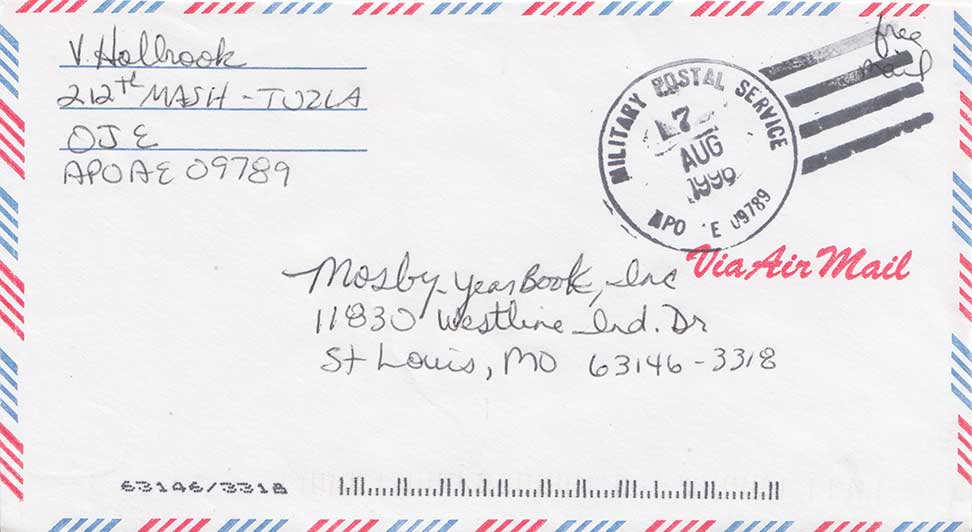 V. Holbrook
212th MASH - TUZLA
OJE
APO AE 09789
free
mail
MILITARY POSTAL SERVICE
7
AUG
1996
APO E 09789
Via Air Mail
Mosby-Year Book, Inc
11830 Westline Ind. Dr
St Louis, MO 63146-3318
63146/3318